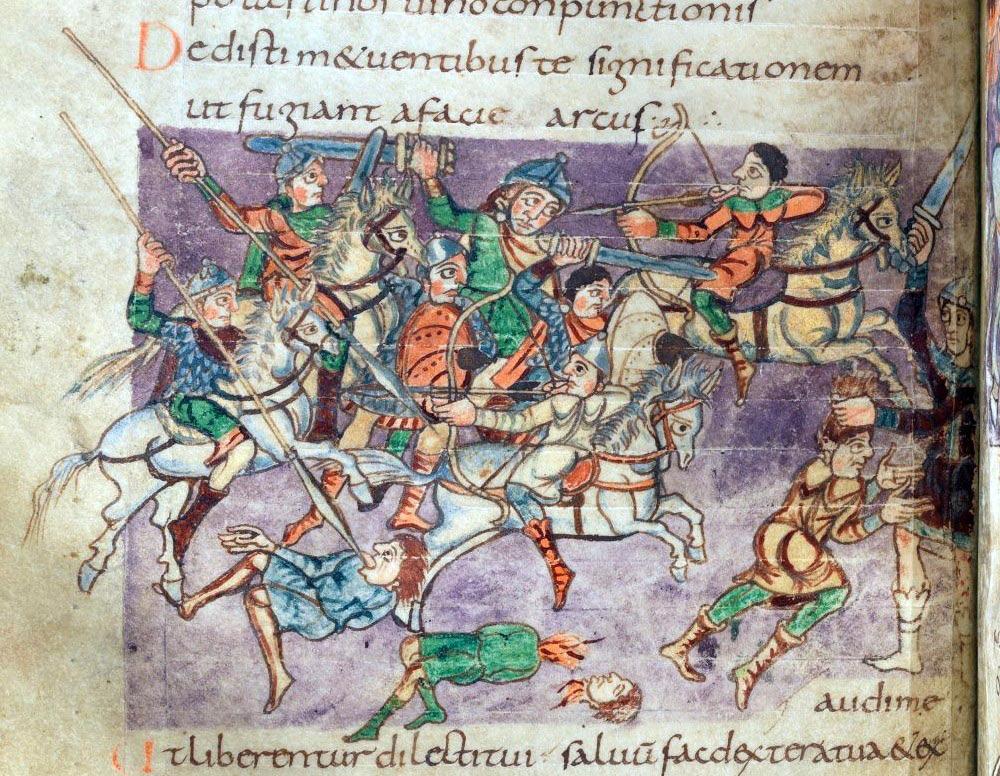 potasti nos uino conpunctionis
Dedisti m&uentibus te significationem
ut fugiant a facie arcus :
audi me
Ut liberentur dilecti tui · saluū fac dextera tua & ex